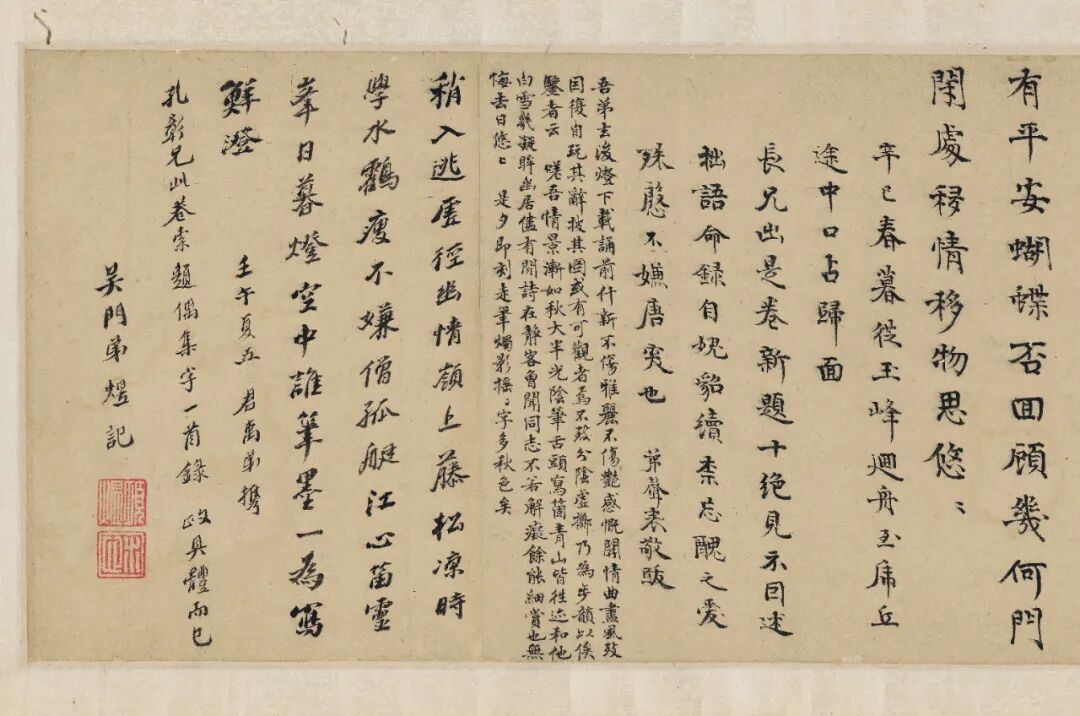 有平安蝴蝶否回顧幾何門
閑處移情移物思悠〻
辛巳春暮從玉峰迴舟至虎丘
途中口占歸面
長兄出是卷新題十絕見示因述
拙語命錄自愧貂續柰忘醜之愛
殊慙不嫌唐突也 弟聲表敬跋
吾弟去後燈下載誦前什新不傷雅麗不傷艷感慨閒情曲盡風致
因復自玩其辭披其圖或有可觀者焉不致分陰虛擲乃為步韻以俟
鑒者云 嗟吾情景漸如秋大半光陰筆舌頭寫箇青山皆往迹和他
白雪幾凝眸幽居儘有閒詩在靜客曾聞同志不若解癡餘能細賞也無
悔去日悠〻 是夕即刻走筆燭影搖〻字多秋色矣
稍入逃厓徑幽情嶺上藤松涼時
學水鸖瘦不嫌僧孤艇江心笛靈
峯日暮燈空中誰筆墨一為寫
鮮澄
壬午夏五 君禹弟攜
孔彰兄此卷索題偶集字一首錄 政具體而已
吳門弟煜記